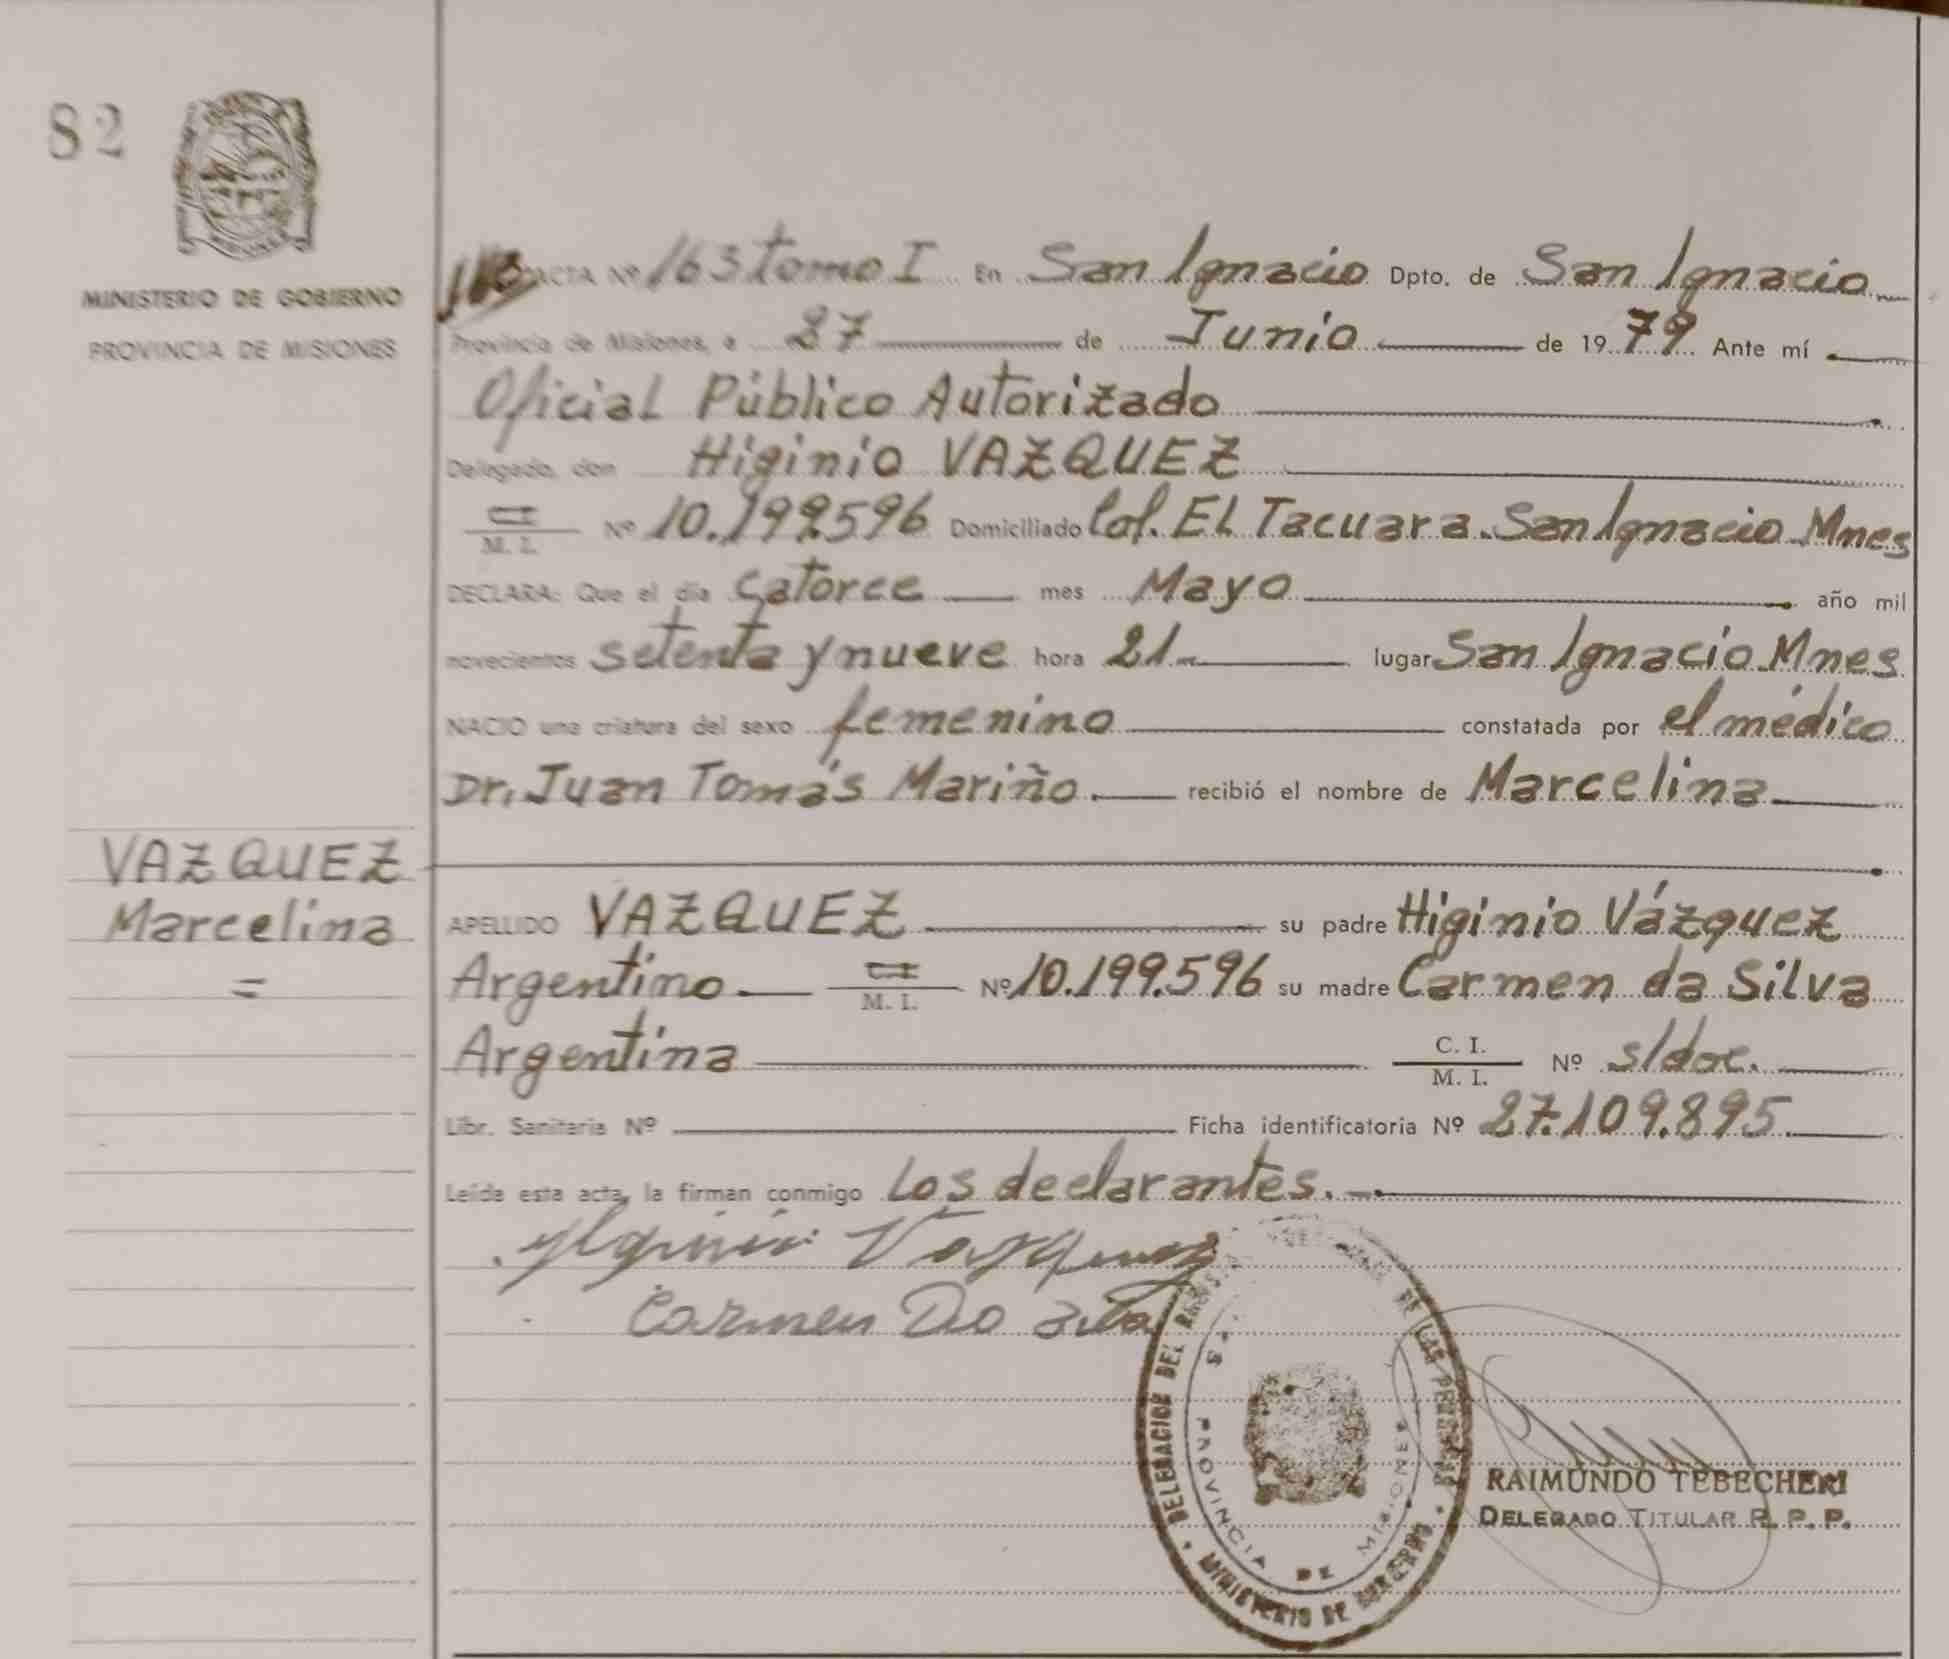 82
MINISTERIO DE GOBIERNO
PROVINCIA DE MISIONES
ACTA Nº 163 tomo I En San Ignacio Dpto. de San Ignacio
Provincia de Misiones, a 27 de Junio de 1979 Ante mí
Oficial Público Autorizado
Delegado, don Higinio VAZQUEZ
C I
M. I. Nº 10.199.596 Domiciliado Col. EL Tacuara. San Ignacio Mnes
DECLARA: Que el día catorce mes Mayo año mil
novecientos setenta y nueve hora 21 lugar San Ignacio Mnes
NACIO una criatura del sexo femenino constatada por el médico
Dr. Juan Tomás Mariño. recibió el nombre de Marcelina
VAZQUEZ
Marcelina
=
APELLIDO VAZQUEZ su padre Higinio Vázquez
Argentino C I
M. I. Nº 10.199.596 su madre Carmen da Silva
Argentina C. I.
M. I. Nº s/doc.
Libr. Sanitaria Nº Ficha identificatoria Nº 27.109.895
Leída esta acta, la firman conmigo Los declarantes.
Vazquez
Carmen Do
DELEGACION DEL DE LAS
PROVINCIA DE MISIONES
MINISTERIO DE GOBIERNO
RAIMUNDO TEBECHERI
DELEGADO TITULAR R. P. P.